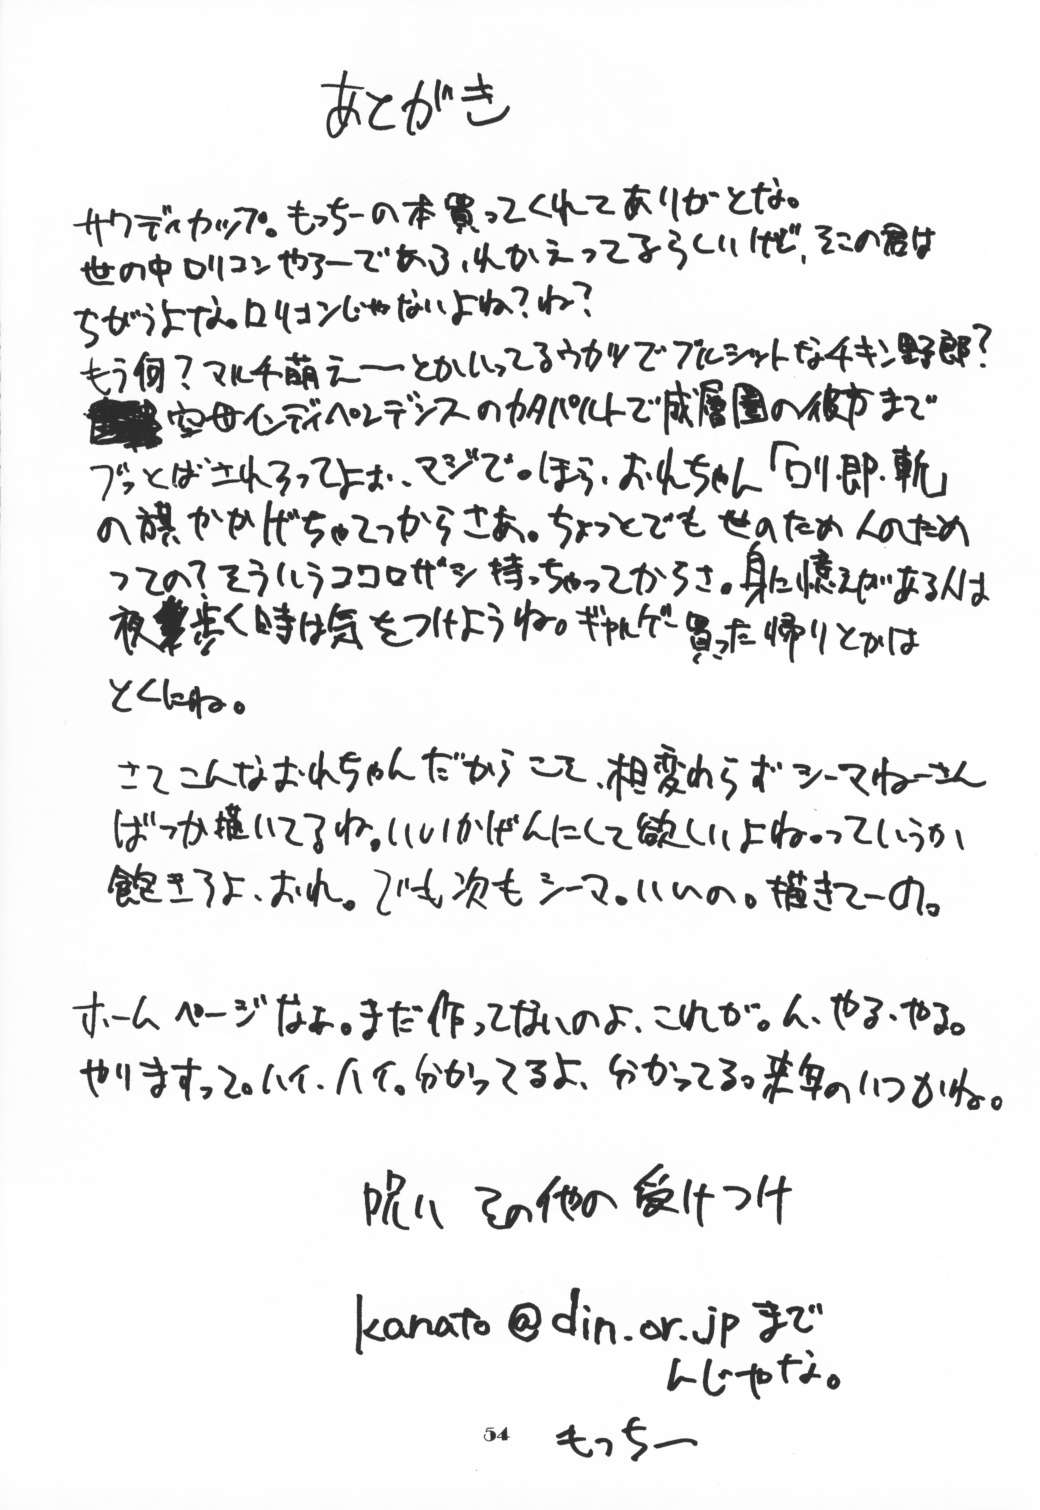 あとがき
サウディカップ。もっちーの本買ってくれてありがとな。
世の中ロリコンやろーであふれかえってるらしいけど、そこの君は
ちがうよな。ロリコンじゃないよね?ね?
もう何?マルチ萌えーとかいってるウカツでブルシットなチキン野郎?
空母インディペンデンスのカタパルトで成層圏の彼方まで
ブッとばされろってよぉ、マジで。ほら、おれちゃん「ロリ・即・斬」
の旗かかげちゃてっからさあ。ちょっとでも世のため人のため
っての?そういうココロザシ持っちゃってからさ。身に憶えがある人は
夜歩く時は気をつけようね。ギャルゲー買った帰りとかは
とくにね。
さてこんなおれちゃんだからこそ、相変わらずシーマねーさん
ばっか描いてるね。いいかげんにして欲しいよね。っていうか
飽きろよ、おれ。でも次もシーマ。いいの。描きてーの。
ホームページなぁ。まだ作ってないのよ、これが。ん、やる、やる。
やりますって。ハイ、ハイ。分かってるよ、分かってる。来年のいつかね。
呪い その他の受けつけ
kanato@din.or.jpまで
んじゃな。
54
もっちー